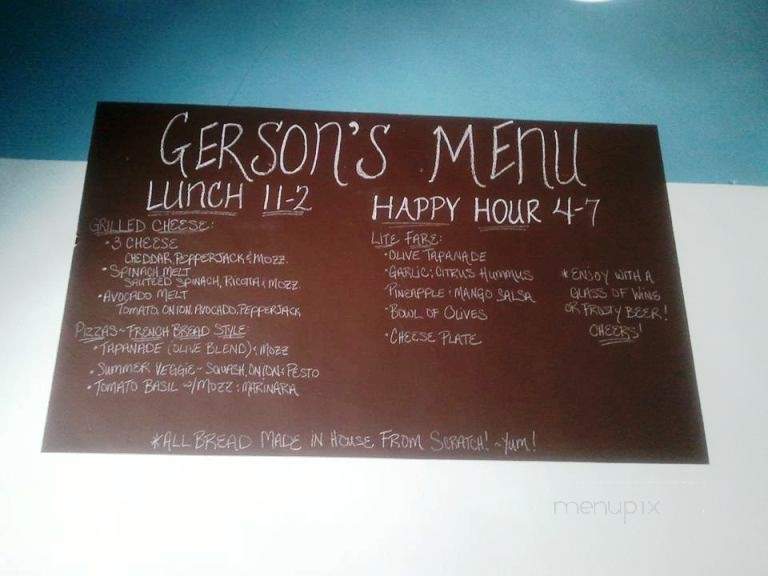 GERSON'S MENU
LUNCH 11-2
GRILLED CHEESE:
• 3 CHEESE
CHEDDAR, PEPPERJACK & MOZZ.
• SPINACH MELT
SAUTEED SPINACH, RICOTTA & MOZZ.
• AVOCADO MELT
TOMATO, ONION, AVOCADO, PEPPERJACK
PIZZAS ~ FRENCH BREAD STYLE
• TAPANADE (OLIVE BLEND) & MOZZ
• SUMMER VEGGIE ~ SQUASH, ONION & PESTO
• TOMATO BASIL W/ MOZZ & MARINARA
HAPPY HOUR 4-7
LITE FARE:
• OLIVE TAPANADE
• GARLIC & CITRUS HUMMUS
• PINEAPPLE & MANGO SALSA
• BOWL OF OLIVES
• CHEESE PLATE
* ENJOY WITH A
GLASS OF WINE
OR FROSTY BEER!
CHEERS!
*ALL BREAD MADE IN HOUSE FROM SCRATCH! ~YUM!
menupix